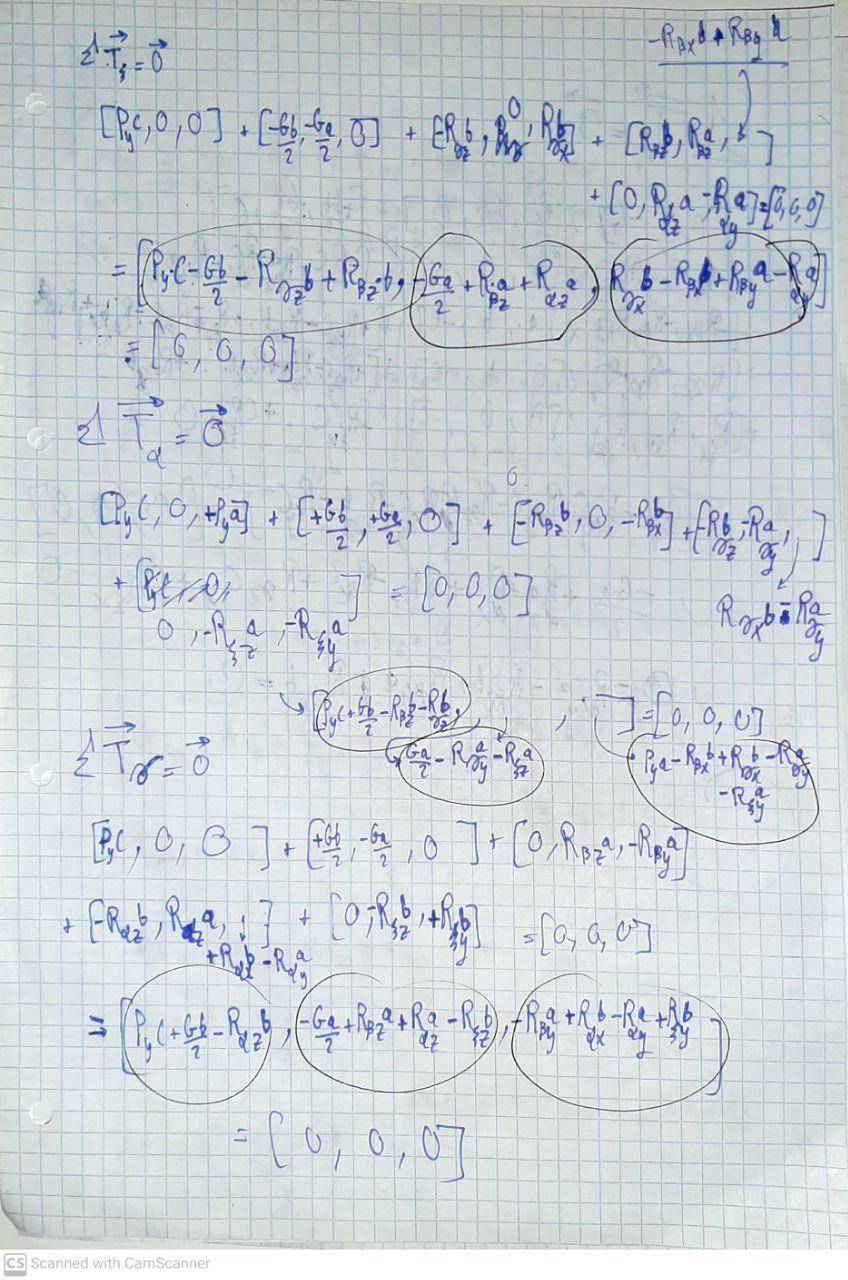 Σ T⃗_ξ = 0⃗
-R_βx b + R_βy a
[P_y c, 0, 0] + [-Gb/2, -Ga/2, 0] + [-R_γz b, 0, R_γx b] + [R_βz b, R_βz a, ]
+ [0, R_αz a, -R_αy a] = [0, 0, 0]
= [P_y c - Gb/2 - R_γz b + R_βz b, -Ga/2 + R_βz a + R_αz a, R_γx b - R_βx b + R_βy a - R_αy a]
= [0, 0, 0]
Σ T⃗_α = 0⃗
[P_y c, 0, +P_y a] + [+Gb/2, +Ga/2, 0] + [-R_βz b, 0, -R_βx b] + [-R_γz b, -R_γy a, ]
+ [ ] = [0, 0, 0]
R_γx b - R_γy a
0, -R_ξz a, -R_ξy a
[P_y c + Gb/2 - R_βz b - R_γz b, , ] = [0, 0, 0]
Σ T⃗_γ = 0⃗
Ga/2 - R_γy a - R_ξz a
P_y a - R_βx b + R_γx b - R_γy a
- R_ξy a
[P_y c, 0, 0] + [+Gb/2, -Ga/2, 0] + [0, R_βz a, -R_βy a]
+ [-R_αz b, R_αz a, ] + [0, -R_ξz b, +R_ξy b] = [0, 0, 0]
+R_αx b - R_αy a
= [P_y c + Gb/2 - R_αz b, -Ga/2 + R_βz a + R_αz a - R_ξz b, -R_βy a + R_αx b - R_αy a + R_ξy b]
= [0, 0, 0]
CS Scanned with CamScanner